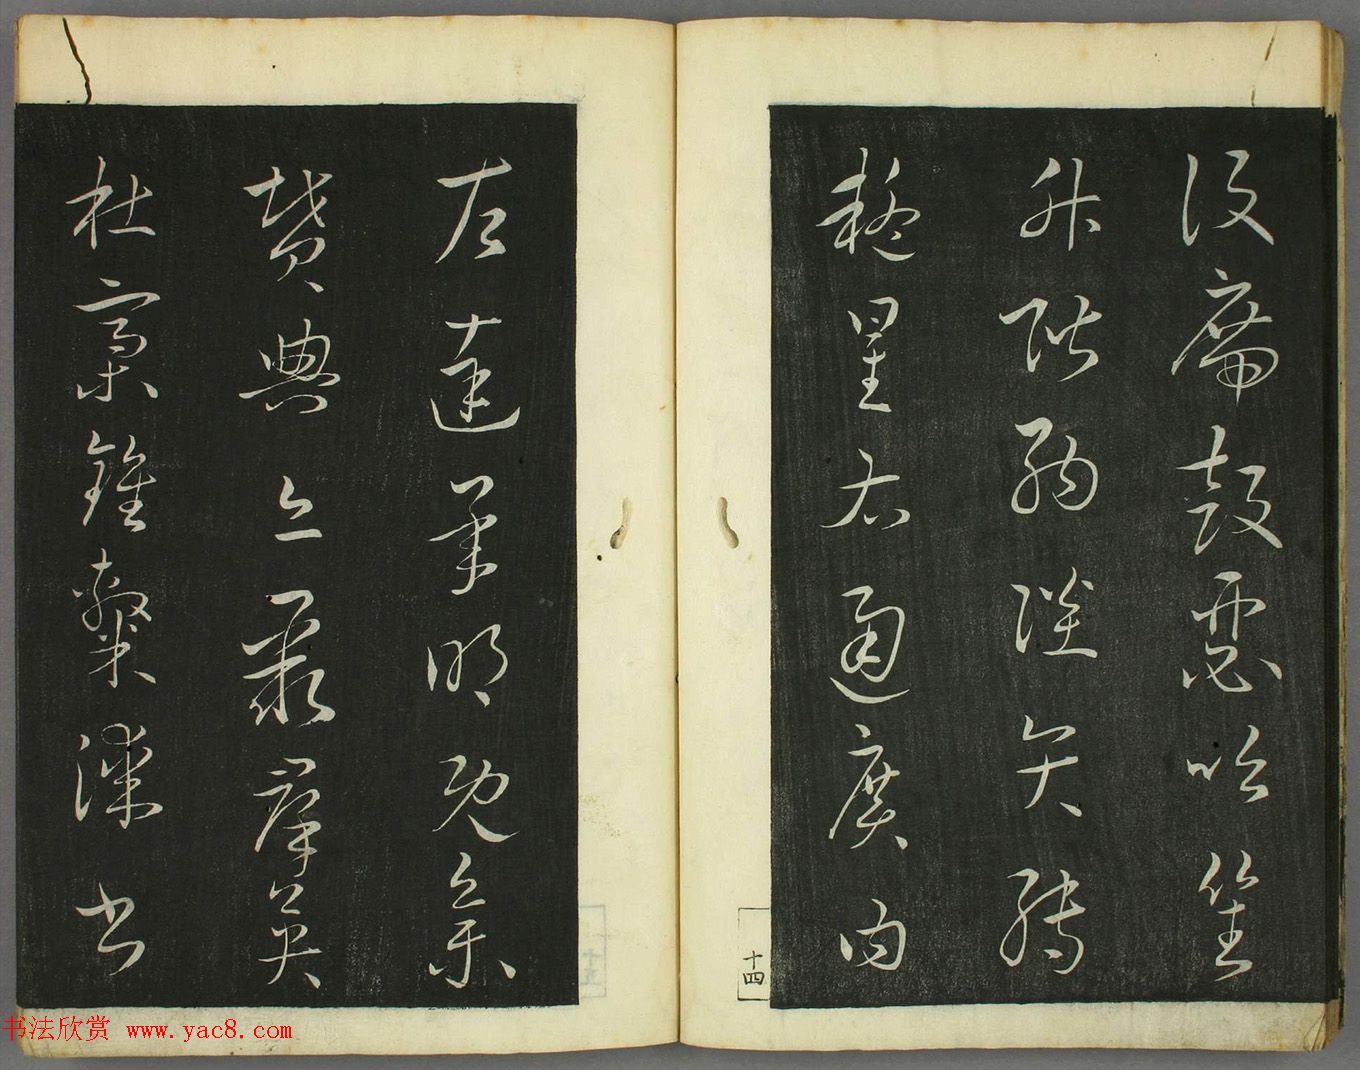 設席鼓瑟吹笙
升階納陛弁轉
疑星右通廣內
十四
左達承明既集
墳典亦聚羣英
杜稾鍾隸漆書
书法欣赏 www.yac8.com